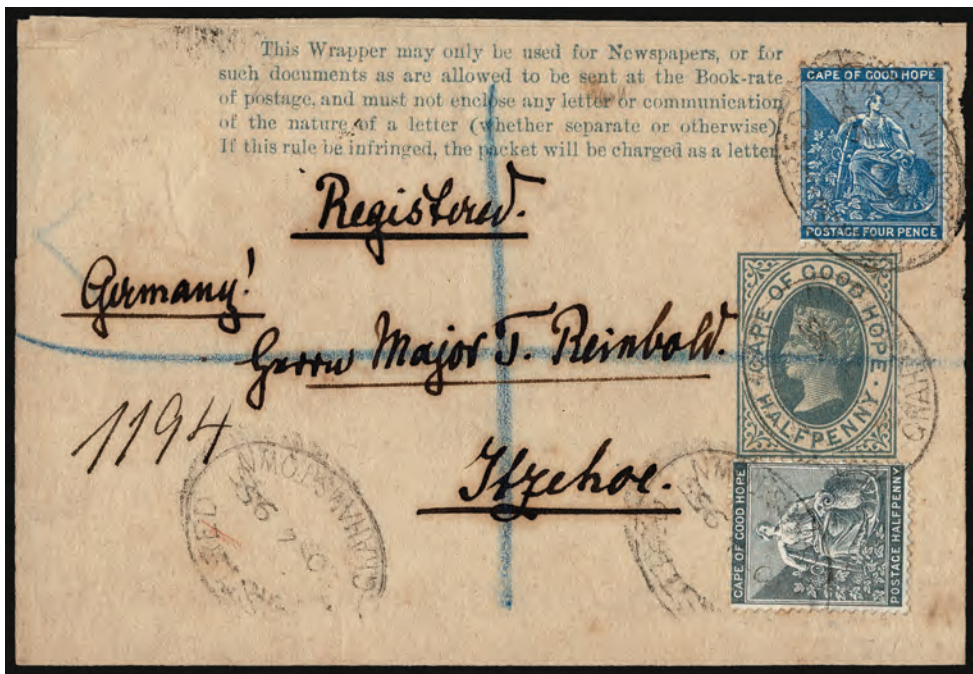 This Wrapper may only be used for Newspapers, or for
such documents as are allowed to be sent at the Book-rate
of postage, and must not enclose any letter or communication
of the nature of a letter (whether separate or otherwise)
If this rule be infringed, the packet will be charged as a letter
CAPE OF GOOD HOPE
POSTAGE FOUR PENCE
Registered.
Germany!
CAPE OF GOOD HOPE
HALFPENNY
Herrn Major T. Reinbold.
1194
Itzehoe.
GRAHAMSTOWN
95
CAPE OF GOOD HOPE
POSTAGE HALFPENNY